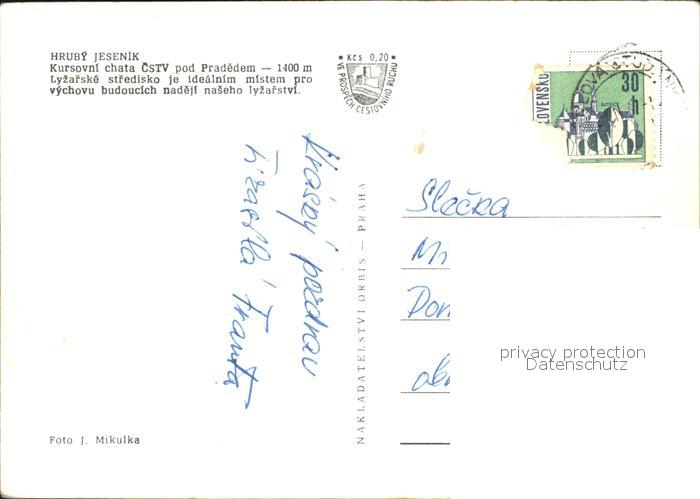 HRUBÝ JESENÍK
Kursovní chata ČSTV pod Pradědem — 1400 m
Lyžařské středisko je ideálním místem pro
výchovu budoucích nadějí našeho lyžařství.
Kčs 0,20
VE PROSPĚCH CESTOVNÍHO RUCHU
LOVENSKO
30
h
Krásný pozdrav
Franta
NAKLADATELSTVÍ ORBIS — PRAHA
Slečna
privacy protection
Datenschutz
Foto J. Mikulka